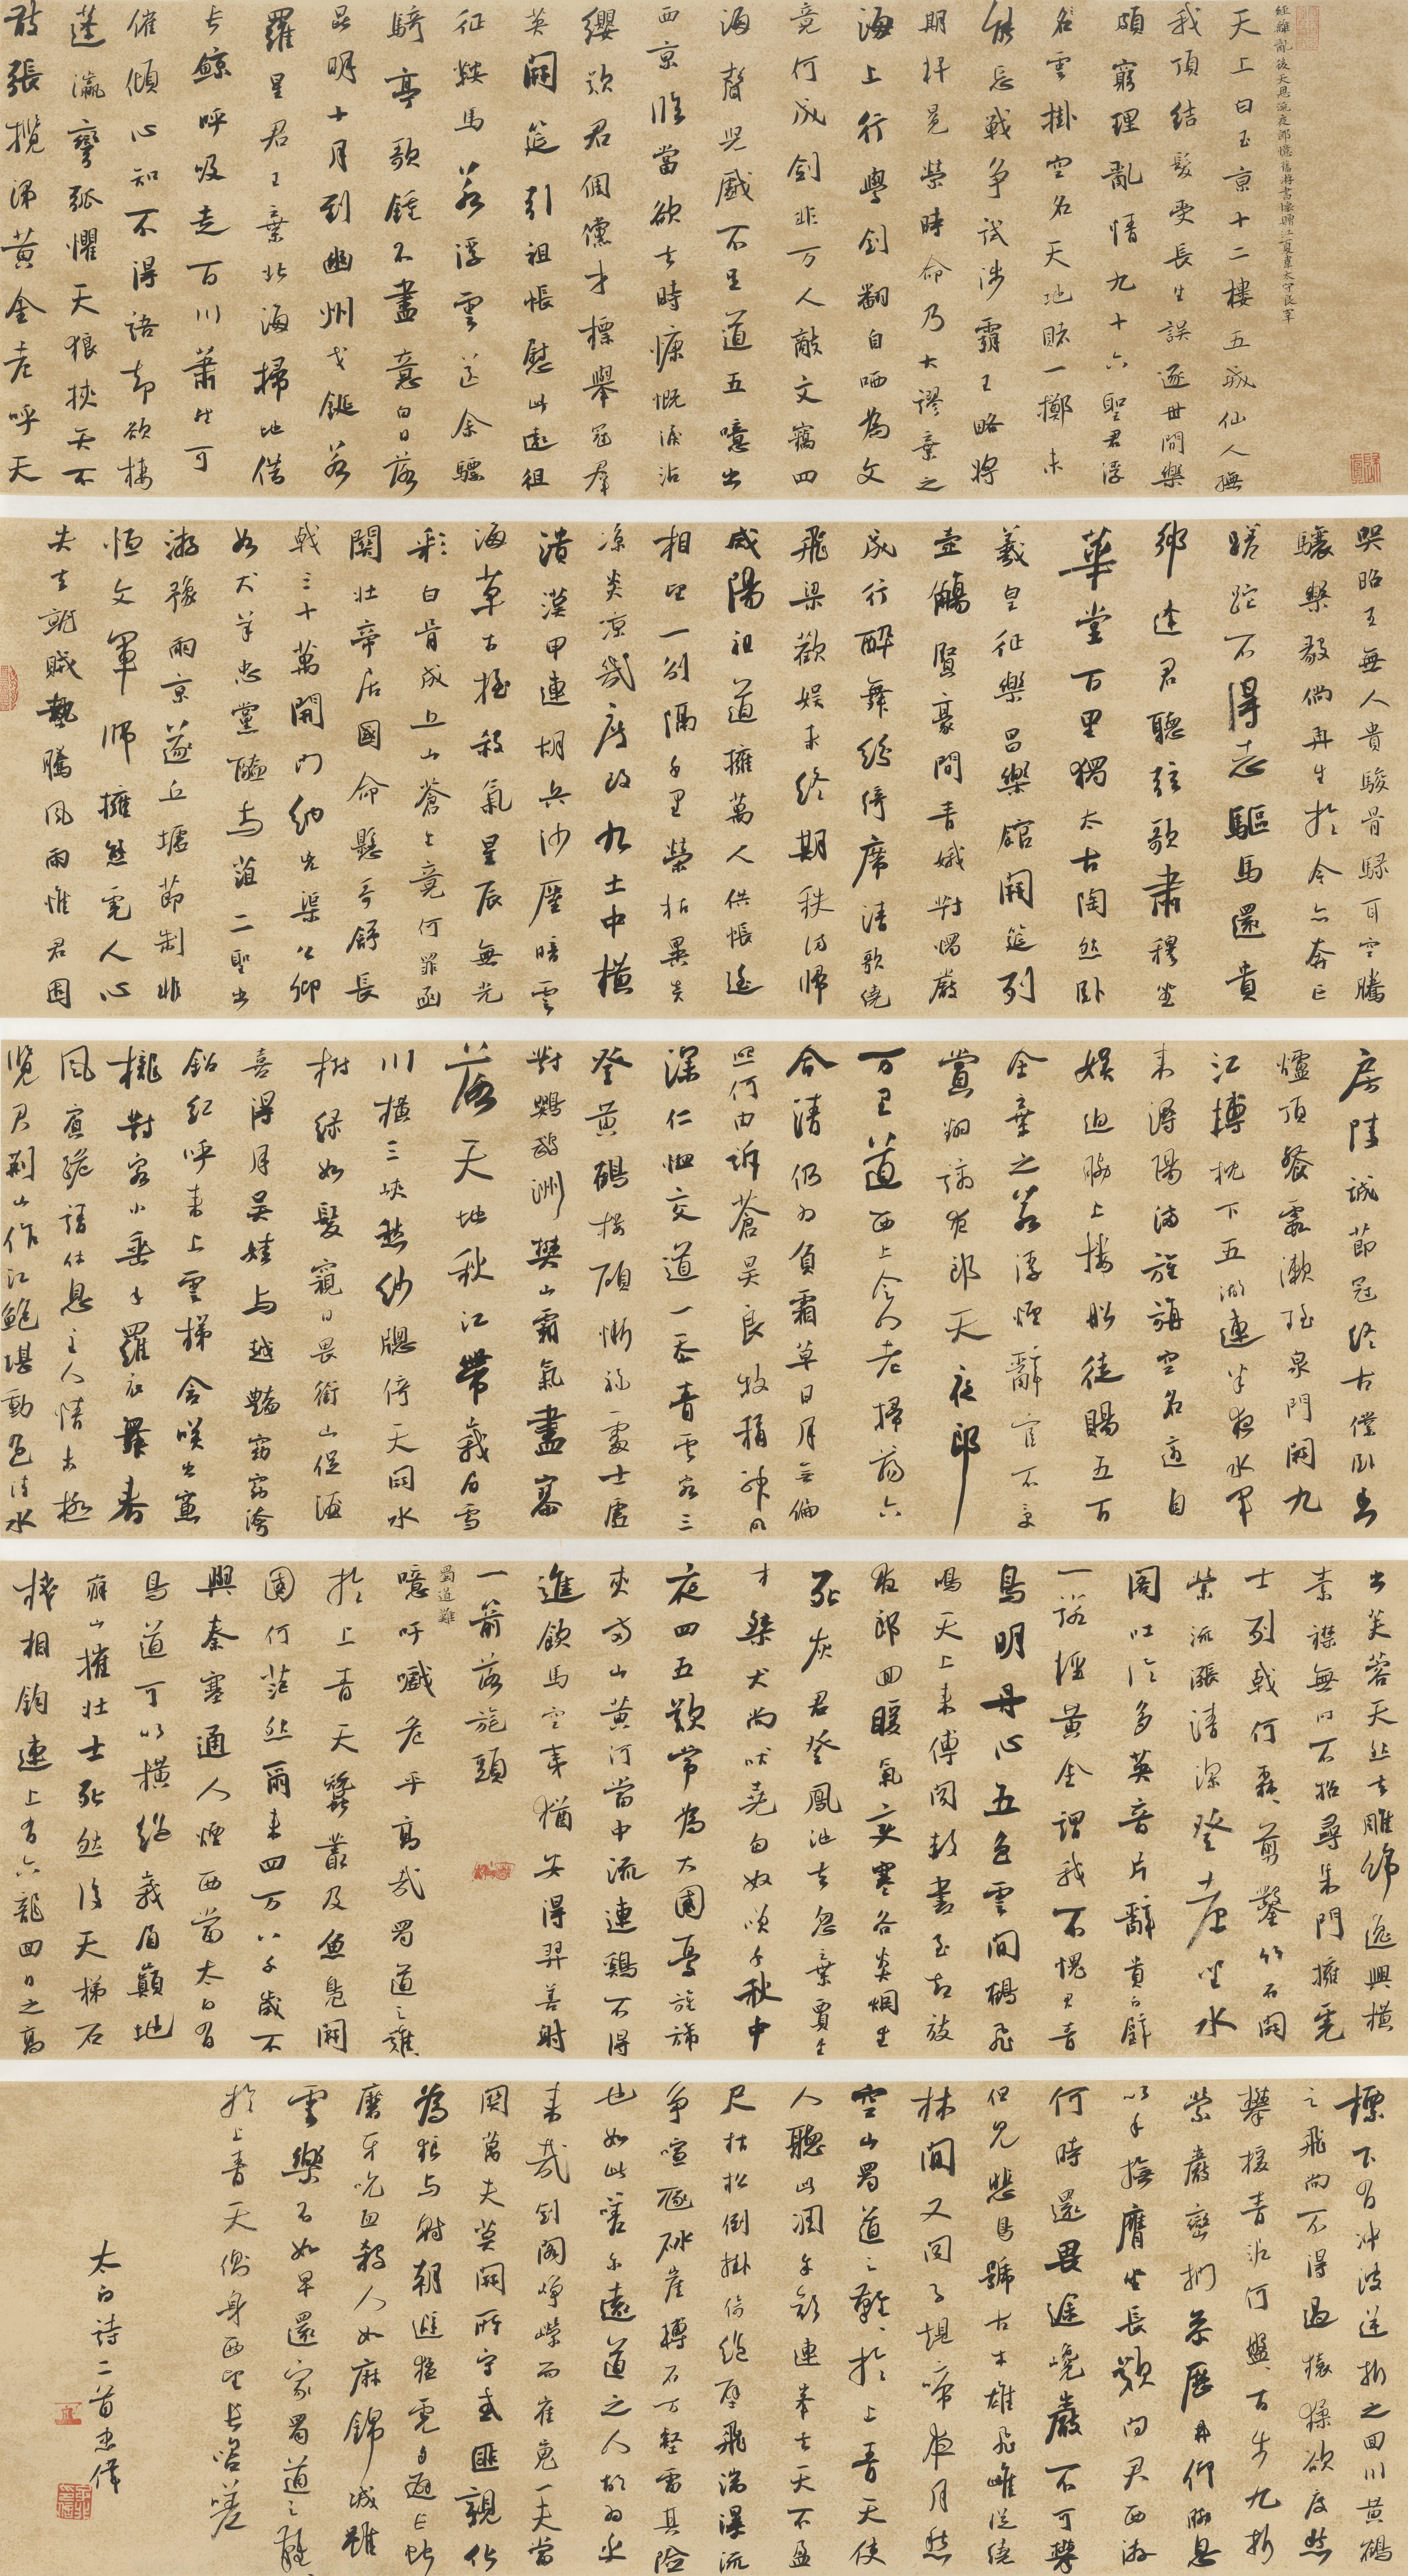 經離亂後天恩流夜郎憶舊遊書懷贈江夏韋太守良宰
天上白玉京十二樓五城仙人撫
我頂結髮受長生誤逐世間樂
頗窮理亂情九十六聖君浮
名雲掛空名天地賭一擲未
能忘戰爭試涉霸王略將
期軒冕榮時命乃大謬棄之
海上行學劍翻自哂為文
竟何成劍非万人敵文竊四
海聲兒戲不足道五噫出
西京臨當欲去時慷慨淚沾
纓歎君倜儻才標舉冠群
英開筵引祖帳慰此遠徂
征鞍馬若浮雲送余驃
騎亭歌鐘不盡意白日落
昆明十月到幽州戈鋋若
羅星君王棄北海掃地借
長鯨呼吸走百川蕭然可
催傾心知不得語却欲棲
蓬瀛彎弧懼天狼挾矢不
敢張攬涕黃金臺呼天
哭昭王無人貴駿骨騄耳空騰
驤樂毅倘再生於今亦奔亡
蹉跎不得志驅馬還貴
鄉逢君聽弦歌肅穆坐
華堂百里獨太古陶然臥
羲皇征樂昌樂館開筵列
壺觴賢豪間青娥對燭儼
成行醉舞紛綺席清歌繞
飛梁歡娛未終期秩滿歸
咸陽祖道擁萬人供帳遙
相望一別隔千里榮枯異炎
涼炎涼幾度改九土中橫
潰漢甲連胡兵沙塵暗雲
海草木搖殺氣星辰無光
彩白骨成丘山蒼生竟何罪函
關壯帝居國命懸哥舒長
戟三十萬開門納兇渠公卿
如犬羊忠讜醢與菹二聖出
游豫兩京遂丘墟節制非
恒文軍師擁熊虎人心
失去就賊勢騰風雨惟君固
房陵誠節冠終古僕臥香
爐頂餐霞漱瑤泉門開九
江摶枕下五湖連半夜水軍
來潯陽滿旌旃空名適自
娛迫脅上樓船徒賜五百
金棄之若浮煙辭官不受
賞翻謫夜郎天夜郎
万里道西上令人老掃蕩六
合清仍為負霜草日月無偏
照何由訴蒼昊良牧稱神明
深仁恤交道一忝青雲客三
登黃鶴樓顧慚禰處士虛
對鸚鵡洲樊山霸氣盡寥
落天地秋江帶峨眉雪
川橫三峽愁紗窗倚天開水
樹綠如髮窺日畏銜山促酒
喜得月吳娃與越艷窈窕誇
鉛紅呼來上雲梯含笑出簾
櫳對客小垂手羅衣舞春
風賓跪請休息主人情未極
覽君荊山作江鮑堪動色清水
出芙蓉天然去雕飾逸興橫
素襟無時不招尋朱門擁虎
士列戟何森森剪鑿竹石開
縈流漲清深登臺坐水
閣吐論多英音片辭貴白璧
一諾輕黃金謂我不愧君青
鳥明丹心五色雲間鵲飛
鳴天上來傳聞赦書至却放
夜郎回暖氣變寒谷炎煙生
死灰君登鳳池去忽棄賈生
才桀犬尚吠堯匈奴笑千秋中
夜四五歎常為大國憂旌旆
夾兩山黃河當中流連鷄不得
進飲馬空夷猶安得羿善射
一箭落旄頭
蜀道難
噫吁嚱危乎高哉蜀道之難難
於上青天蠶叢及魚鳧開
國何茫然爾來四万八千歲不
與秦塞通人煙西當太白有
鳥道可以橫絕峨眉巔地
崩山摧壯士死然後天梯石
棧相鈎連上有六龍回日之高
標下有沖波逆折之回川黃鶴
之飛尚不得過猿猱欲度愁
攀援青泥何盤盤百步九折
縈巖巒捫參歷井仰脅息
以手撫膺坐長歎問君西遊
何時還畏途巉巖不可攀
但見悲鳥號古木雄飛雌從繞
林間又聞子規啼夜月愁
空山蜀道之難難於上青天使
人聽此凋朱顏連峯去天不盈
尺枯松倒掛倚絕壁飛湍瀑流
爭喧豗砯崖轉石万壑雷其險
也如此嗟爾遠道之人胡為乎
來哉劍閣崢嶸而崔嵬一夫當
關萬夫莫開所守或匪親化
為狼與豺朝避猛虎夕避長蛇
磨牙吮血殺人如麻錦城雖
云樂不如早還家蜀道之難難
於上青天側身西望長咨嗟
太白詩二首忠偉